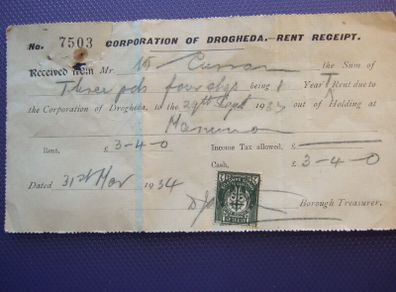 No. 7503 CORPORATION OF DROGHEDA.—RENT RECEIPT.
Received from Mr. Curran the Sum of
Three pds four being 1 Year Rent due to
the Corporation of Drogheda, to the 29th Sept 1933 out of Holding at
Rent, £ 3-4-0 Income Tax allowed, £
Cash, £ 3-4-0
Dated 31st Mar 1934
Borough Treasurer.